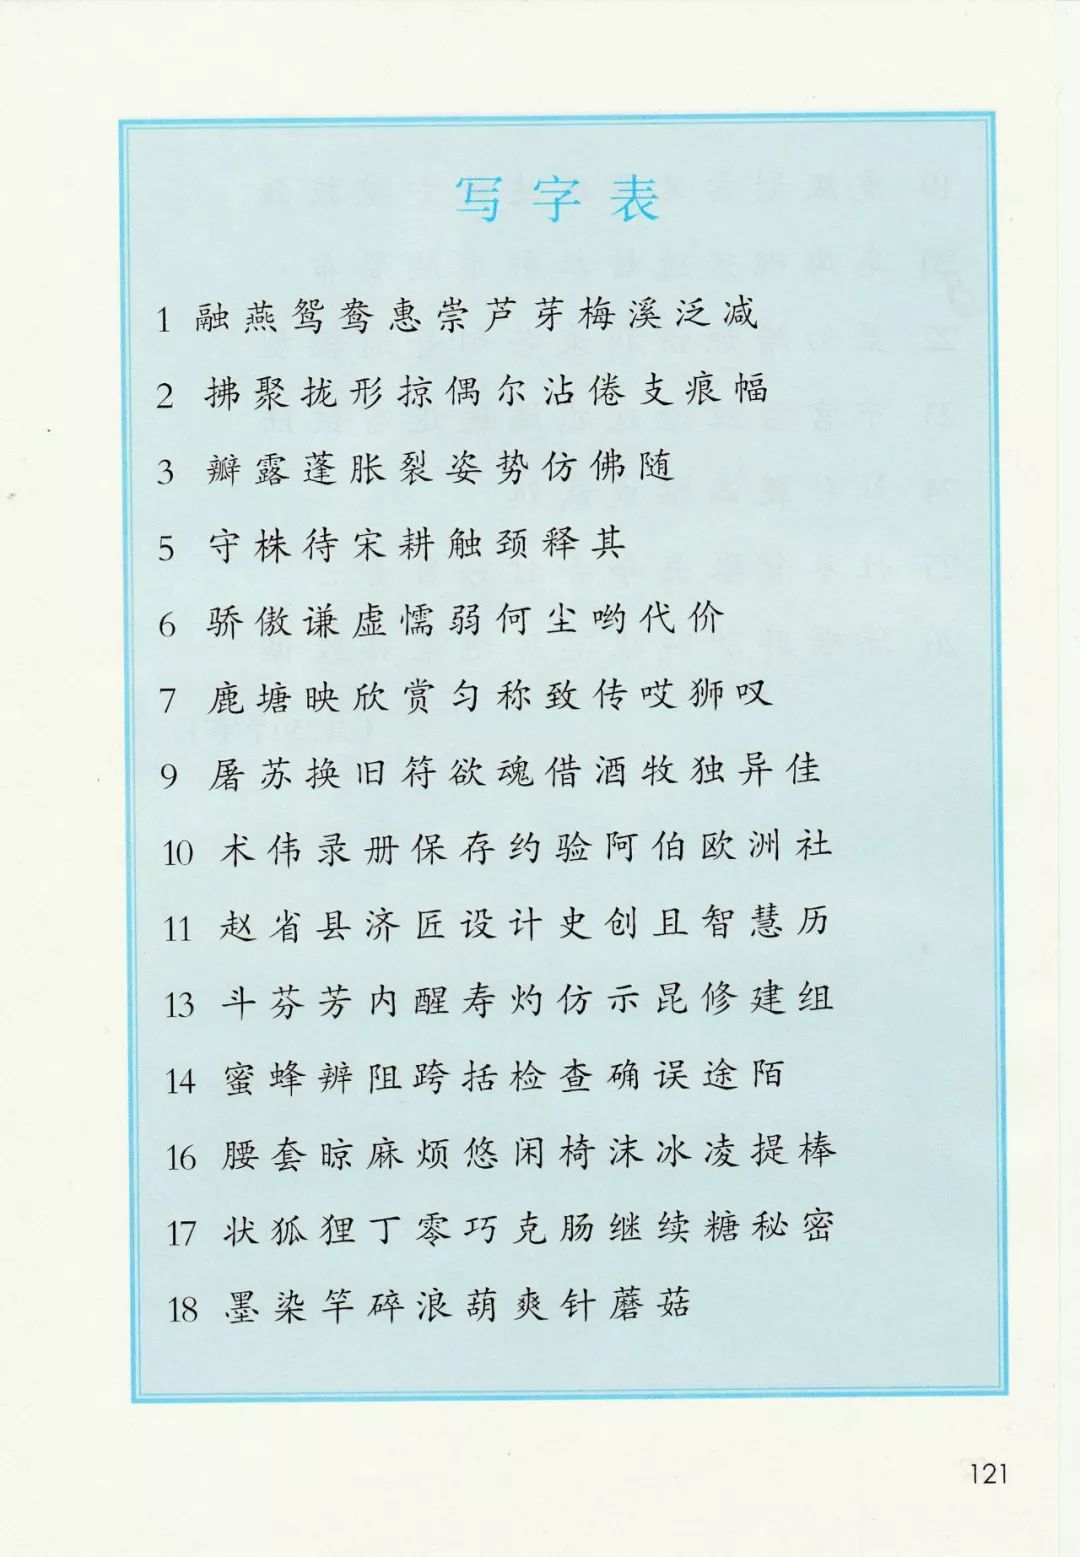 写字表
1 融燕鸳鸯惠崇芦芽梅溪泛减
2 拂聚拢形掠偶尔沾倦支痕幅
3 瓣露蓬胀裂姿势仿佛随
5 守株待宋耕触颈释其
6 骄傲谦虚懦弱何尘哟代价
7 鹿塘映欣赏匀称致传哎狮叹
9 屠苏换旧符欲魂借酒牧独异佳
10 术伟录册保存约验阿伯欧洲社
11 赵省县济匠设计史创且智慧历
13 斗芬芳内醒寿灼仿示昆修建组
14 蜜蜂辨阻跨括检查确误途陌
16 腰套晾麻烦悠闲椅沫冰凌提棒
17 状狐狸丁零巧克肠继续糖秘密
18 墨染竿碎浪葫爽针蘑菇
121